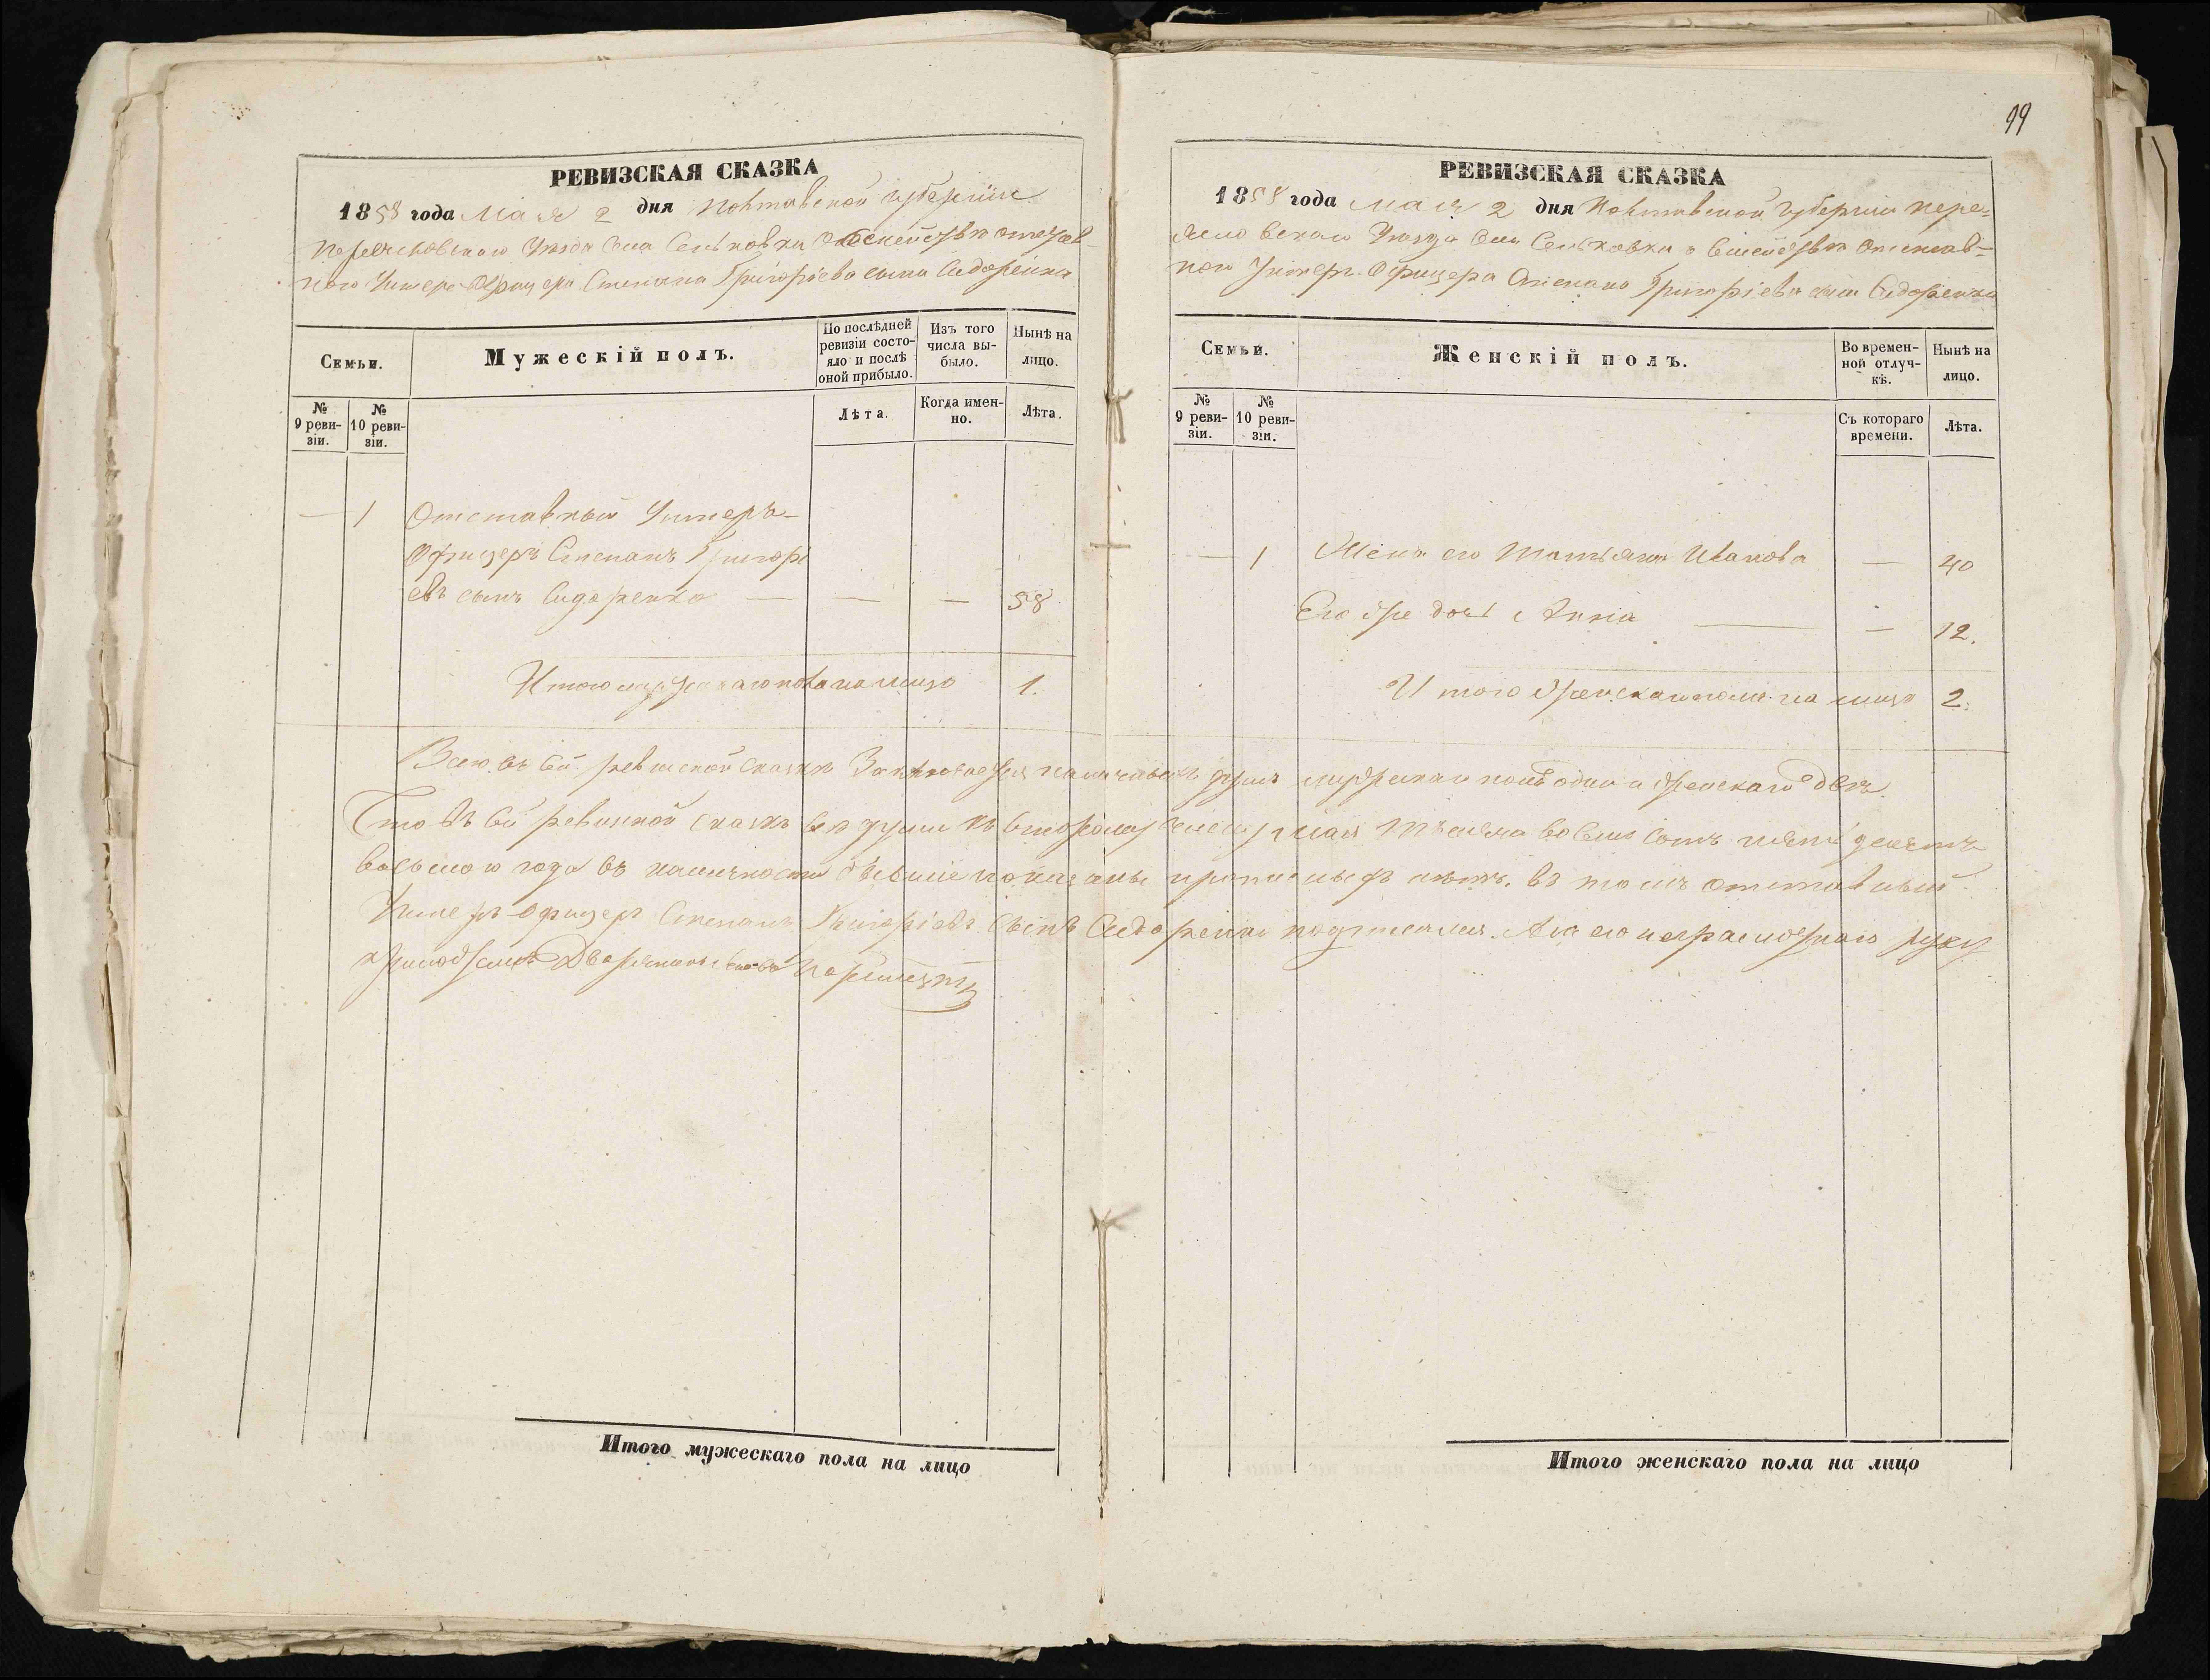 99
РЕВИЗСКАЯ СКАЗКА
1858 года Мая 2 дня Полтавской губерніи
Переясловскаго Уезда Села Сеньковки о семействѣ отстав-
ного Унтеръ-Офицера Степана Григоріева сына Сидоренка
Семьи.
Мужескій полъ.
По послѣдней ревизіи состо-
яло и послѣ оной прибыло.
Изъ того числа вы-
было.
Нынѣ на лицо.
№ 9 реви-
зіи.
№ 10 реви-
зіи.
Лѣта.
Когда имен-
но.
Лѣта.
— 1 Отставный Унтеръ-
Офицеръ Степанъ Григорі
евъ сынъ Сидоренко — — — 58
Итого мужескаго пола на лицо 1.
РЕВИЗСКАЯ СКАЗКА
1858 года мая 2 дня Полтавской губерніи Пере-
ясловскаго Уезда Села Сеньковки о Семействѣ Отстав-
ного Унтеръ-Офицера Степана Григоріева сына Сидоренка
Семьи.
Женскій полъ.
Во времен-
ной отлуч-
кѣ.
Нынѣ на лицо.
№ 9 реви-
зіи.
№ 10 реви-
зіи.
Съ котораго времени.
Лѣта.
— 1 Жена его Татьяна Иванова — 40
Его же дочь Анна — — 12.
Итого женскаго пола на лицо 2.
Всего въ сей ревизской сказкѣ Заключается наличныхъ душъ мужскаго пола одна и женскаго двѣ.
Что въ сей ревизской сказкѣ всѣ души къ второму числу мая Мѣсяца восемьсотъ пятьдесятъ
восьмого года въ наличности бывшие показаны прописныхъ нѣтъ. въ томъ отставный
Унтеръ-Офицеръ Степанъ Григоріевъ Сынъ Сидоренко подписался. А за его неграмотнаго руку
приложилъ Дворянинъ
Итого мужескаго пола на лицо
Итого женскаго пола на лицо